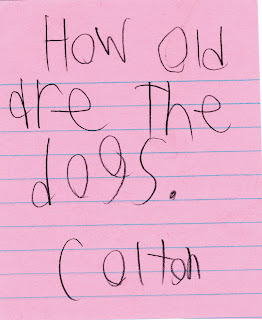 How old
are The
dogs.
Colton